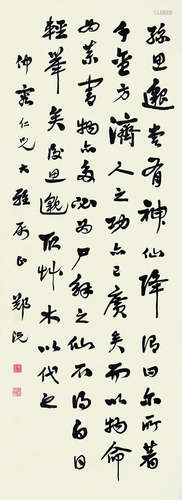 孫思邈嘗有神仙降謂曰尔所著
千金方濟人之功亦已廣矣而以物命
為藥害物亦多必為尸解之仙不得白日
輕舉矣後思邈取草木以代之
仲容仁兄大雅屬正 鄭沅